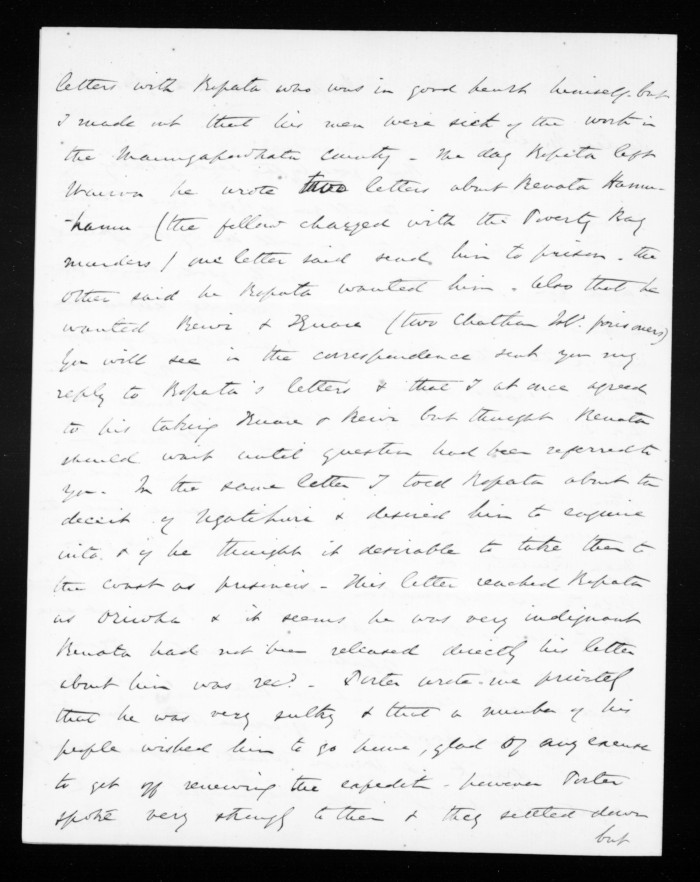 letters with Ropata who was in good heart himself but
I made out that his men were sick of the work in
the Maungapowhatu country - The day Ropata left
Wairoa he wrote two letters about Renata Hamu-
-hamu (the fellow charged with the Poverty Bay
murders) one letter said send him to prison - the
other said he Ropata wanted him - Also that he
wanted Rewi & (two Chatham Isl. prisoners)
You will see in the correspondence sent you my
reply to Ropata's letters & that I at once agreed
to his taking & Rewi but thought Renata
should wait until question had been referred to
you - In the same letter I told Ropata about the
deceit of & desired him to enquire
into & if he thought it desirable to take them to
the coast as prisoners - This letter reached Ropata
as & it seems he was very indignant
Renata had not been released directly his letter
about him was recd. - Porter wrote me privately
that he was very sulky & that a number of his
people wished him to go home, glad of any excuse
to get off renewing the expeditn - however Porter
spoke very strongly to them & they settled down
but